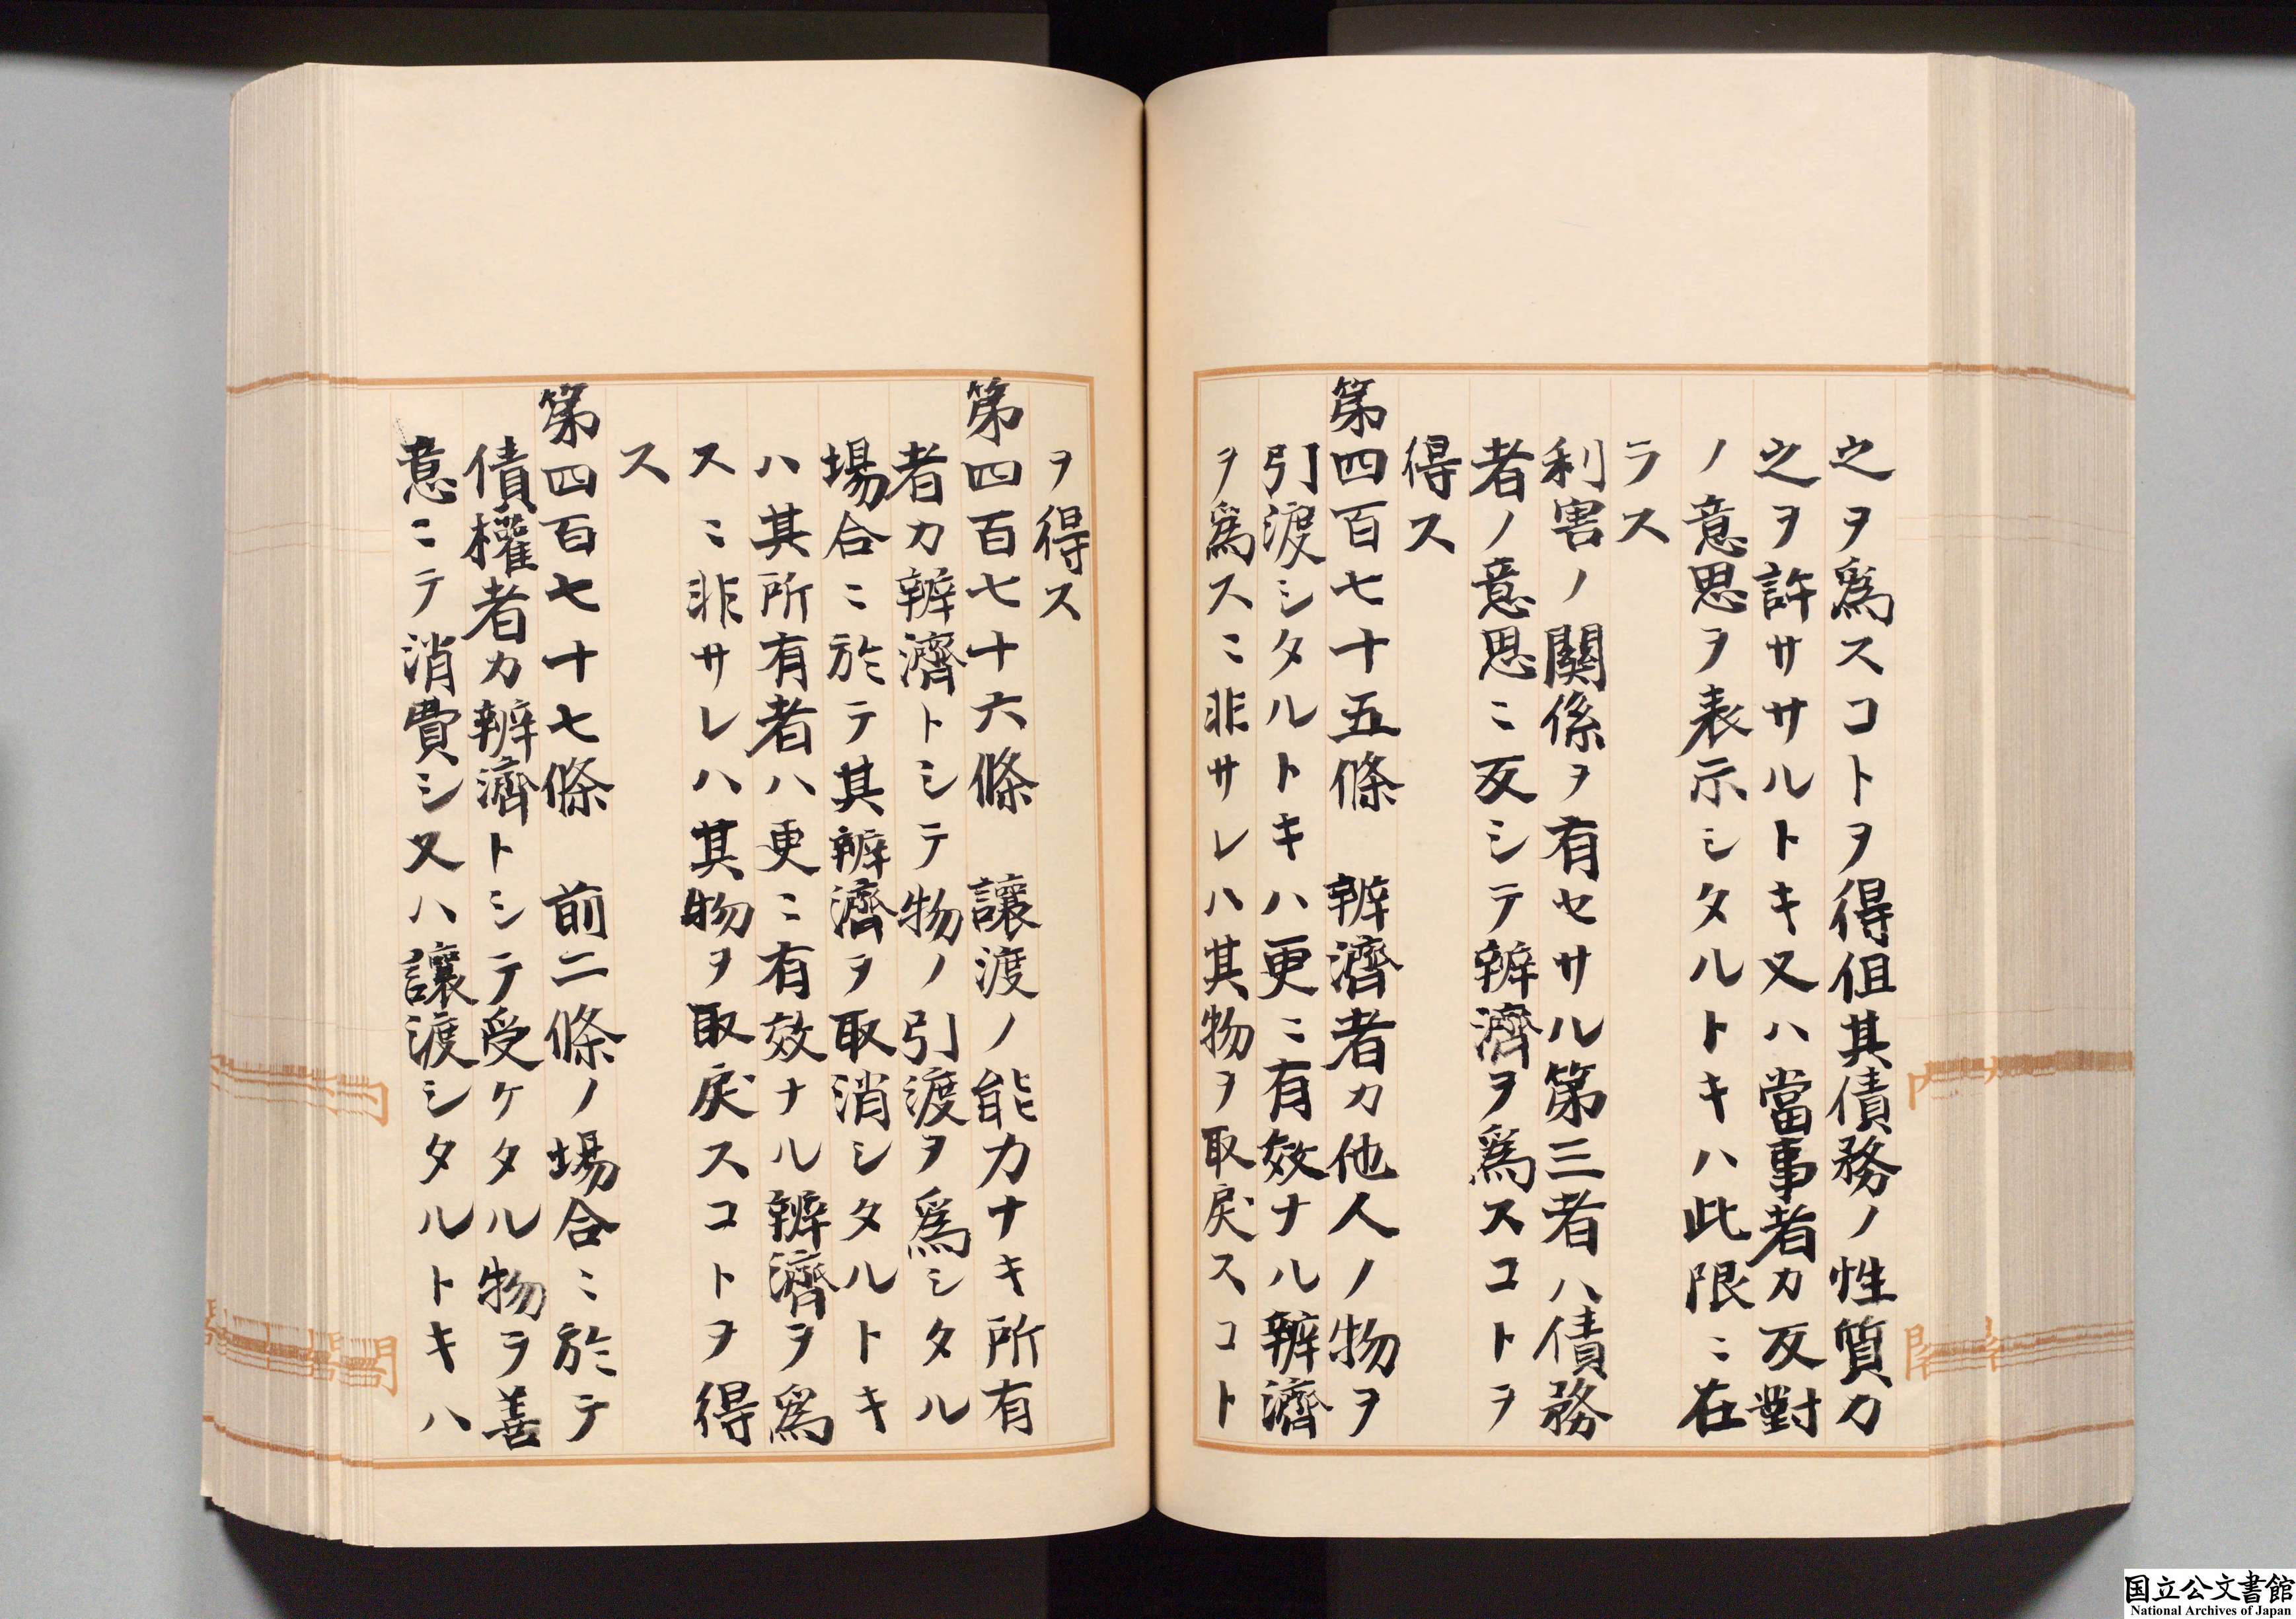 之ヲ爲スコトヲ得但其債務ノ性質カ
之ヲ許ササルトキ又ハ當事者カ反對
ノ意思ヲ表示シタルトキハ此限ニ在
ラス
利害ノ關係ヲ有セサル第三者ハ債務
者ノ意思ニ反シテ辨濟ヲ爲スコトヲ
得ス
第四百七十五條　辨濟者カ他人ノ物ヲ
引渡シタルトキハ更ニ有效ナル辨濟
ヲ爲スニ非サレハ其物ヲ取戾スコト
ヲ得ス
第四百七十六條　讓渡ノ能力ナキ所有
者カ辨濟トシテ物ノ引渡ヲ爲シタル
場合ニ於テ其辨濟ヲ取消シタルトキ
ハ其所有者ハ更ニ有效ナル辨濟ヲ爲
スニ非サレハ其物ヲ取戾スコトヲ得
ス
第四百七十七條　前二條ノ場合ニ於テ
債權者カ辨濟トシテ受ケタル物ヲ善
意ニテ消費シ又ハ讓渡シタルトキハ
国立公文書館
National Archives of Japan